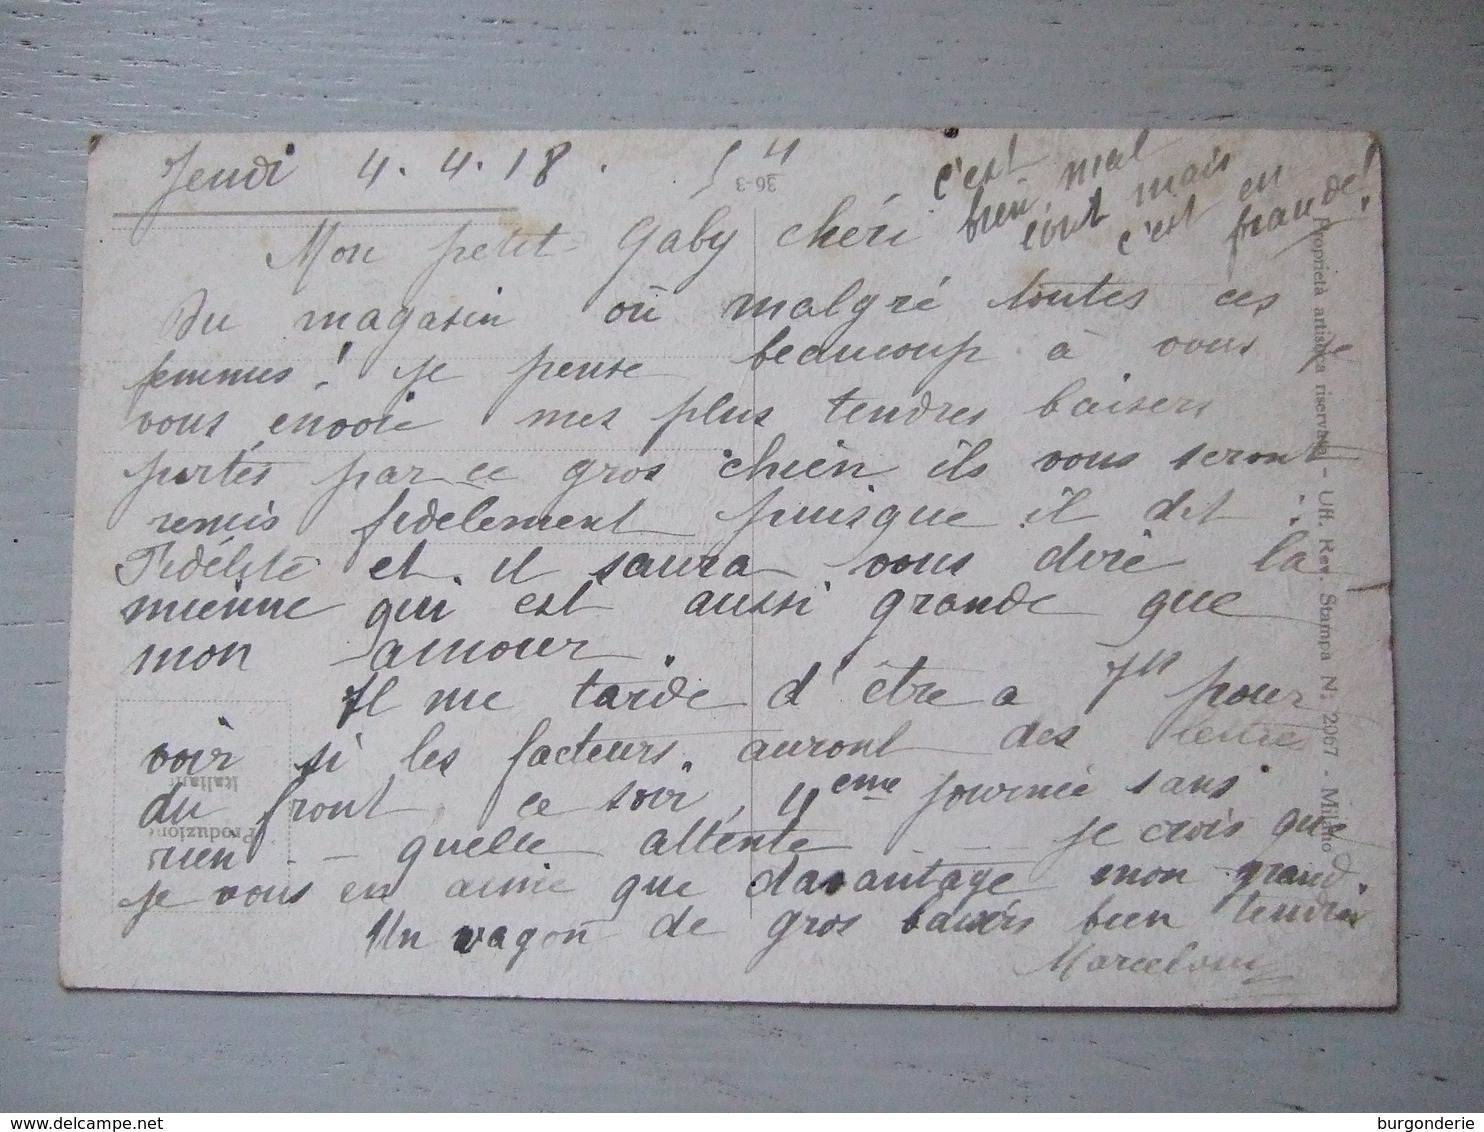 Jeudi 4.4.18.
c'est
bien mal
écrit mais
c'est en
fraude!
Mon petit Gaby chéri
Du magasin où malgré toutes ces
femmes! je pense beaucoup à vous je
vous envoie mes plus tendres baisers
portés par ce gros chien ils vous seront
remis fidèlement puisque il dit :
Fidélité et il saura vous dire la
mienne qui est aussi grande que
mon amour.
Il me tarde d'être a 7h pour
voir si les facteurs auront des lettres
du front, ce soir, 4eme journée sans
rien - - quelle attente - - je crois que
je vous en aime que davantage mon grand.
Un wagon de gros baisers bien tendres
Marcelour
36-3
Proprietà artistica riservata - Uff. Rev. Stampa N. 2067 - Milano
Produzione
italiana
burgonderie